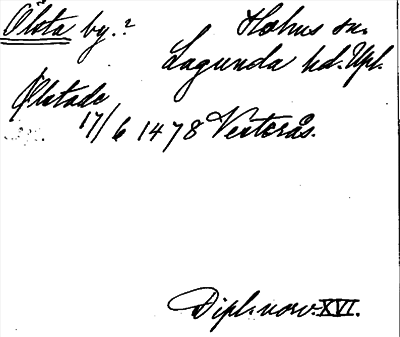 Ölsta by.? Holms sn.
Lagunda hd. Upl.
Ølstade
17/6 1478 Vesterås.
Dipl. norv. XVI.